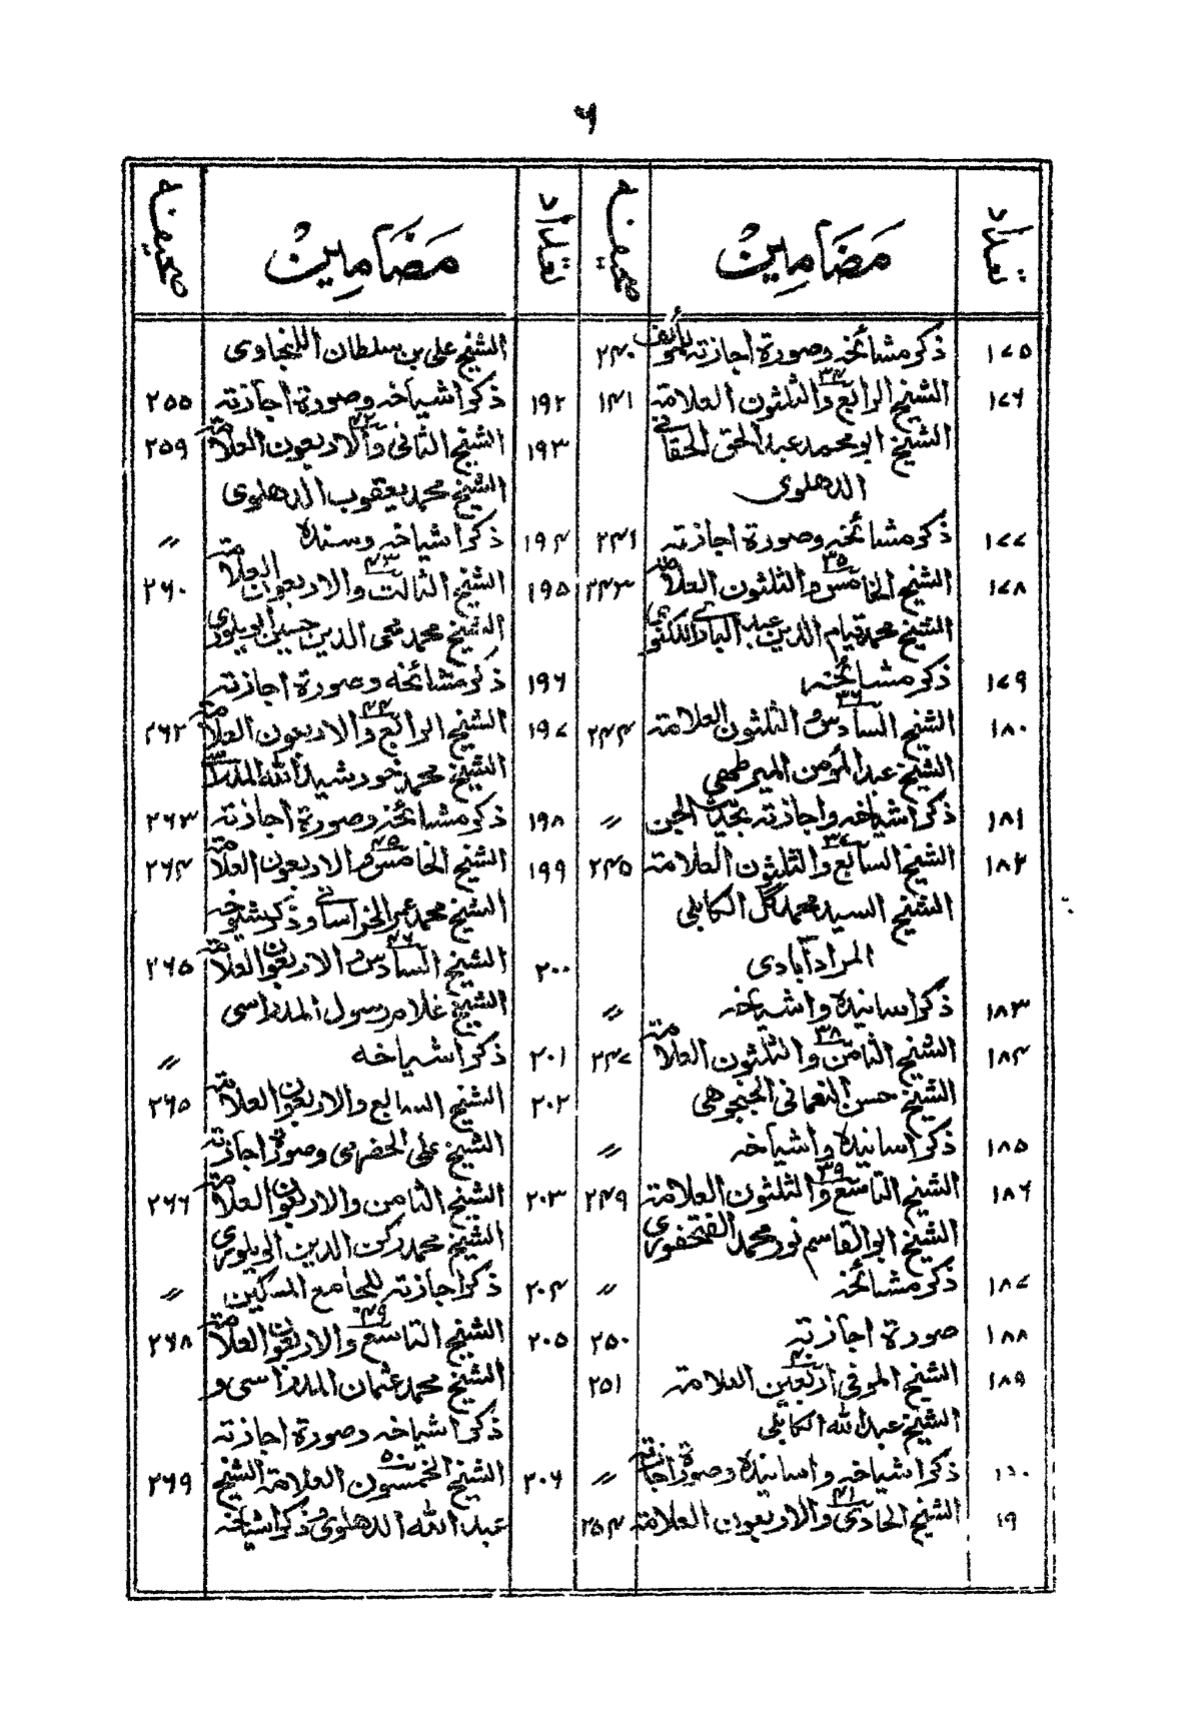 ۶
تعداد مضامین صحیفہ
۱۷۵ ذکر مشائخہ وصورة اجازتہ للمؤلف ۲۴۰
۱۷۶ الشیخ الرابع والثلثون العلامة ۳۴ ۱۴۱
الشیخ ابو محمد عبد الحق الحقانی
الدهلوی
۱۷۷ ذکر مشائخہ وصورة اجازتہ ۲۴۱
۱۷۸ الشیخ الخامس والثلثون العلامة ۳۵ ۲۴۳
الشیخ محمد قیام الدین عبد الباری اللکنوی
۱۷۹ ذکر مشائخہ
۱۸۰ الشیخ السادس والثلثون العلامة ۳۶ ۲۴۴
الشیخ عبد المؤمن المیرطهی
۱۸۱ ذکر اشیاخہ واجازتہ بحدیث الجن 〃
۱۸۲ الشیخ السابع والثلثون العلامة ۳۷ ۲۴۵
الشیخ السید محمد گل الکابلی
المرادآبادی
۱۸۳ ذکر اسانیدہ واشیاخہ 〃
۱۸۴ الشیخ الثامن والثلثون العلامة ۳۸ ۲۴۷
الشیخ حسن النعمانی الجنجوهی
۱۸۵ ذکر اسانیدہ واشیاخہ 〃
۱۸۶ الشیخ التاسع والثلثون العلامة ۳۹ ۲۴۹
الشیخ ابو القاسم نور محمد الفتحفوری
۱۸۷ ذکر مشائخہ 〃
۱۸۸ صورة اجازتہ ۲۵۰
۱۸۹ الشیخ الموفی اربعین العلامة ۴۰ ۲۵۱
الشیخ عبد الله الکابلی
ذکر اشیاخہ واسانیدہ وصورة اجازتہ 〃
۱۹ الشیخ الحادی والاربعون العلامة ۴۱ ۲۵۴
تعداد مضامین صحیفہ
الشیخ علی بن سلطان
۱۹۲ ذکر اشیاخہ وصورة اجازتہ ۲۵۵
۱۹۳ الشیخ الثانی والاربعون العلامة ۴۲ ۲۵۹
الشیخ محمد یعقوب الدهلوی
۱۹۴ ذکر اشیاخہ وسندہ 〃
۱۹۵ الشیخ الثالث والاربعون العلامة ۴۳ ۲۶۰
الشیخ محمد محی الدین حسین الویلوری
۱۹۶ ذکر مشائخہ وصورة اجازتہ
۱۹۷ الشیخ الرابع والاربعون العلامة ۴۴ ۲۶۲
الشیخ محمد خورشید الله
۱۹۸ ذکر مشائخہ وصورة اجازتہ ۲۶۳
۱۹۹ الشیخ الخامس والاربعون العلامة ۴۵ ۲۶۴
الشیخ محمد عمر الخراسانی وذکر شیوخہ
۲۰۰ الشیخ السادس والاربعون العلامة ۴۶ ۲۶۵
الشیخ غلام رسول المدراسی
۲۰۱ ذکر اشیاخہ 〃
۲۰۲ الشیخ السابع والاربعون العلامة ۲۶۵
الشیخ علی وصورة اجازتہ
۲۰۳ الشیخ الثامن والاربعون العلامة ۲۶۶
الشیخ محمد رکن الدین الویلوری
۲۰۴ ذکر اجازتہ للجامع المسکین 〃
۲۰۵ الشیخ التاسع والاربعون العلامة ۴۹ ۲۶۸
الشیخ محمد عثمان المدراسی و
ذکر اشیاخہ وصورة اجازتہ
۲۰۶ الشیخ الخمسون العلامة الشیخ ۵۰ ۲۶۹
عبد الله الدهلوی وذکر اشیاخہ